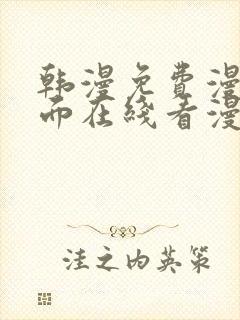 韩漫免费漫
而在线看漫
洼之内英策